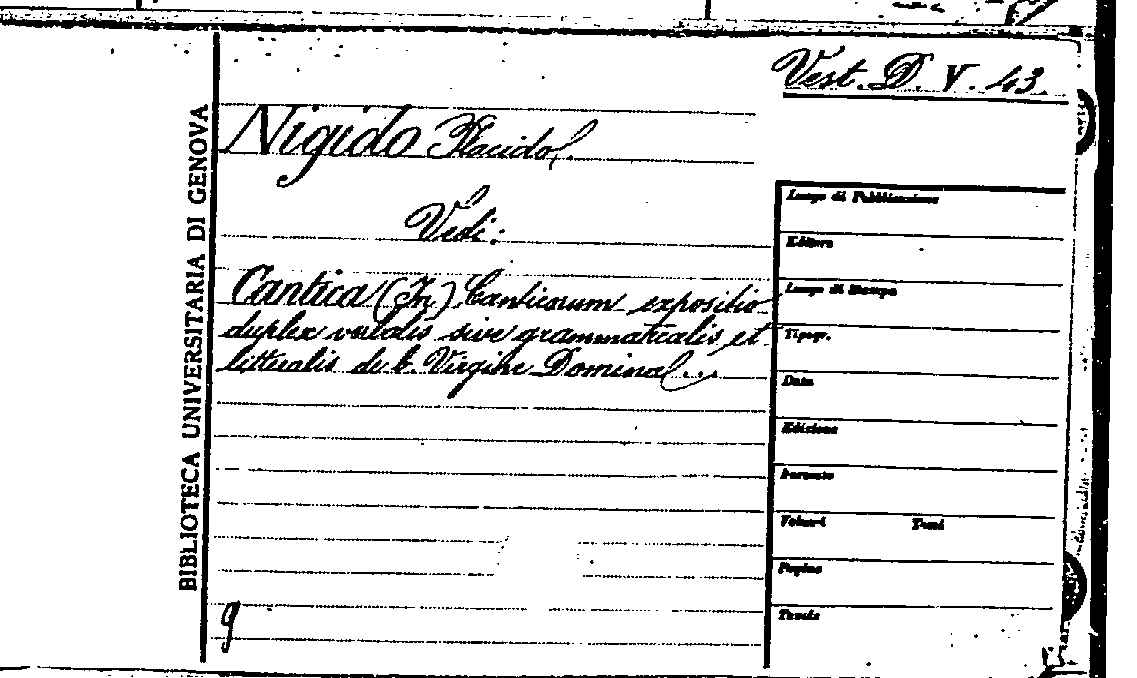 Vest. D. V. 43.
BIBLIOTECA UNIVERSITARIA DI GENOVA
Nigido Placido.
Vedi:
Cantica (In) Canticorum expositio
duplex verbalis sive grammaticalis et
litteralis de b. Virgine Domina...
Luogo di Pubblicazione
Editore
Luogo di Stampa
Tipogr.
Data
Edizione
Formato
Volumi Tomi
Pagine
Tavole
g